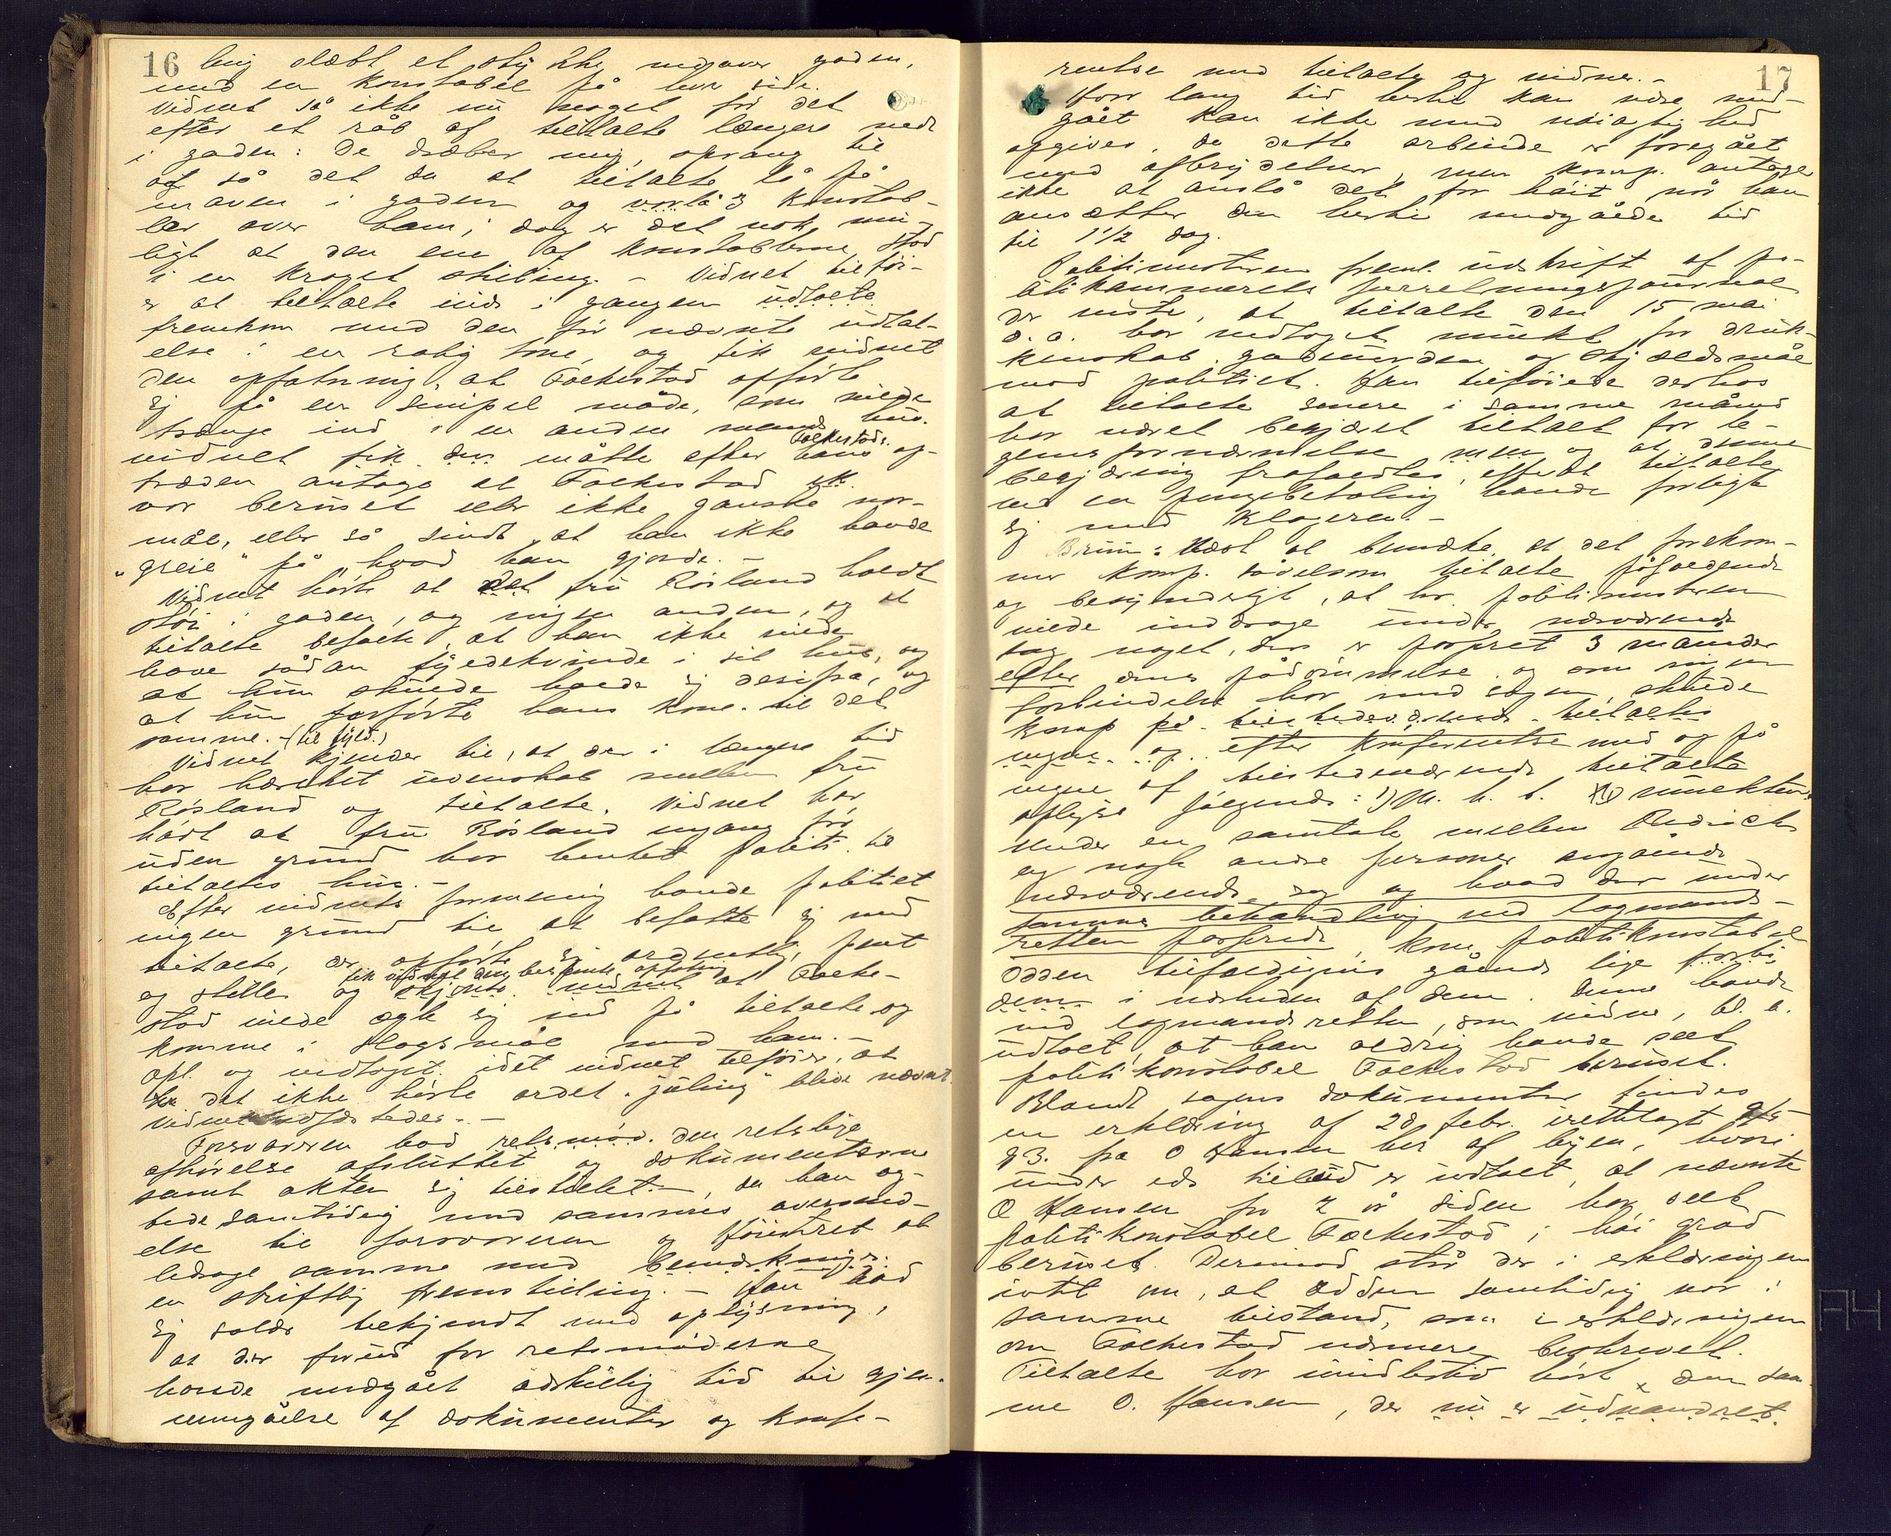 16
blev slæbt et stykke nedover gaden,
med en konstabel på hver side.
Vidnet så ikke nu noget før det
efter et råb af tiltalte længere nede
i gaden: De dræber mig, sprang til
og så det da at tiltalte lå på
maven i gaden og var lå 3 konstab-
ler over ham; dog er det nok mu-
ligt at den ene af konstablerne stod
i en kroget stilling. - Vidnet tilføi-
er at tiltalte inde i gangen udtalte
fremkom med den før nævnte udtal-
else i en rolig tone, og fik vidnet
den opfatning, at Folkestad opførte
sig på en simpel måde, som vilde
trænge ind i en anden mands hus.
Vidnet fik den måtte efter hans Folkestads op-
træden antage at Folkestad
var beruset eller ikke ganske nor-
mal, eller så sindt at han ikke havde
"greie" på hvad han gjorde. -
Vidnet hørte at det fru Røsland holdt
støi i gaden, og ingen anden, og at
tiltalte befalte, at han ikke vilde
have sådan fyldekvinde i sit hus, og
at hun skulde holde sig derifra, og
at hun forførte hans kone til det
samme. - (til fyld.)
Vidnet kjender til, at der i længere tid
har hærsket uvenskab mellem fru
Røsland og tiltalte. Vidnet har
hørt at fru Røsland engang før
uden grund har hentet politi til
tiltaltes hus. -
Efter vidnets formening havde politiet
ingen grund til at befatte sig med
tiltalte, der opførte sig ordentlig, pent
og stille og fik vidnet den bestemte opfatning at Folke-
stad vilde egle sig ind på tiltalte og
komme i slagsmål med ham. -
Opl. og vedtaget, idet vidnet tilføier, at
det ikke hørte ordet "jåling" blive nævnt.
Vidnet edfæstedes. -
Forsvareren bad retsmød. den retslige
afhørelse afsluttet og dokumenterne
samt akten sig tilstillet, da han og-
bede samtidig med sammes oversend-
else til forsvareren og forintret at
ledsage samme med bemærkninger.
en skriftlig fremstilling. - Han bad
sig solds bekjendt med oplysning,
at der forud for retsmøderne
havde medgået adskillig tid til gjen-
nemgåelse af dokumenter og konfe-
17
rentse med tiltalte og vidner. -
Hvor lang tid hertil kan være med-
gået kan ikke med nøiagtighed
opgives, da dette arbeide er foregået
med afbrydelser, men komp. antager
ikke at anslå det for høit, når han
ansætter den hertil medgåede tid
til 1 1/2 dag.
Politimesteren freml. udskrift af po-
litikammerets forretningsjournal
der viste, at tiltalte den 15 mai
d. a. har vedtaget mulkt for druk-
kenskab, gadeuorden og skjældsmål
mod politiet. Han tilføiede derhos
at tiltalte senere i samme måned
har været begjæret tiltalt for le-
gemsfornærmelse, men og at denne
begjæring frafaldtes, efterat tiltalte
ved en pengebetaling havde forligt
sig med klageren. -
Bruun: Næst at bemærke, at det forekom-
mer komp. såvelsom tiltalte påfaldende
og besynderligt, at hr. politimesteren
vilde inddrage under nærværende
sag noget, der er forgået 3 måneder
efter dens pådømmelse, og som ingen
forbindelse har med sagen, skulde
komp på tilstedeværende tiltaltes
vegne og efter konferentse med og på
vegne af tilstedeværende tiltalte
oplyse følgende: 1) M. h. t.
Under en samtale mellem
og nogle andre personer angående
nærværende sag og hvad der under
samme behandling ved lagmands-
retten passerede, kom politikonstabel
Odden tilfældigvis gående lige forbi
dem i nærheden af dem. Denne havde
ved lagmandsretten, som vidne, bl. a.
udtalt, at han aldrig havde seet
politikonstabel Folkestad beruset.
Blandt sagens dokumenter findes
en erklæring af 28 febr. irettelagt
93. fra O Hansen her af byen, hvori
under eds tilbud er udtalt, at nævnte
O Hansen for 2 år siden har seet
politikonstabel Folkestad i høi grad
beruset. Derimod står der i erklæringen
intet om, at Odden samtidig var i
samme tilstand, som i erklæringen
om Folkestad nærmere beskrevet.
Tiltalte har imidlertid hørt den sam-
me O. Hansen, der nu er udvandret.